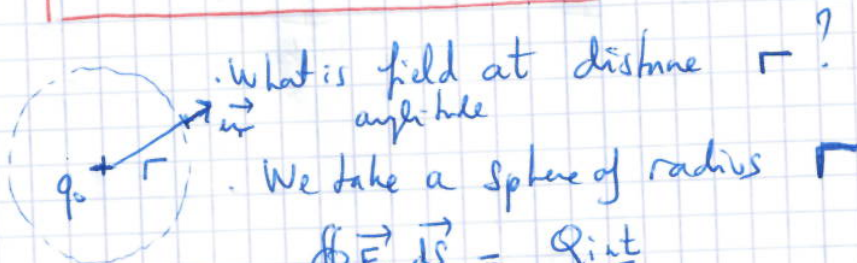 . What is field at distance r ?
amplitude
u⃗r
q₀ + r
. We take a sphere of radius r
∯ E⃗ dS⃗ = Qint